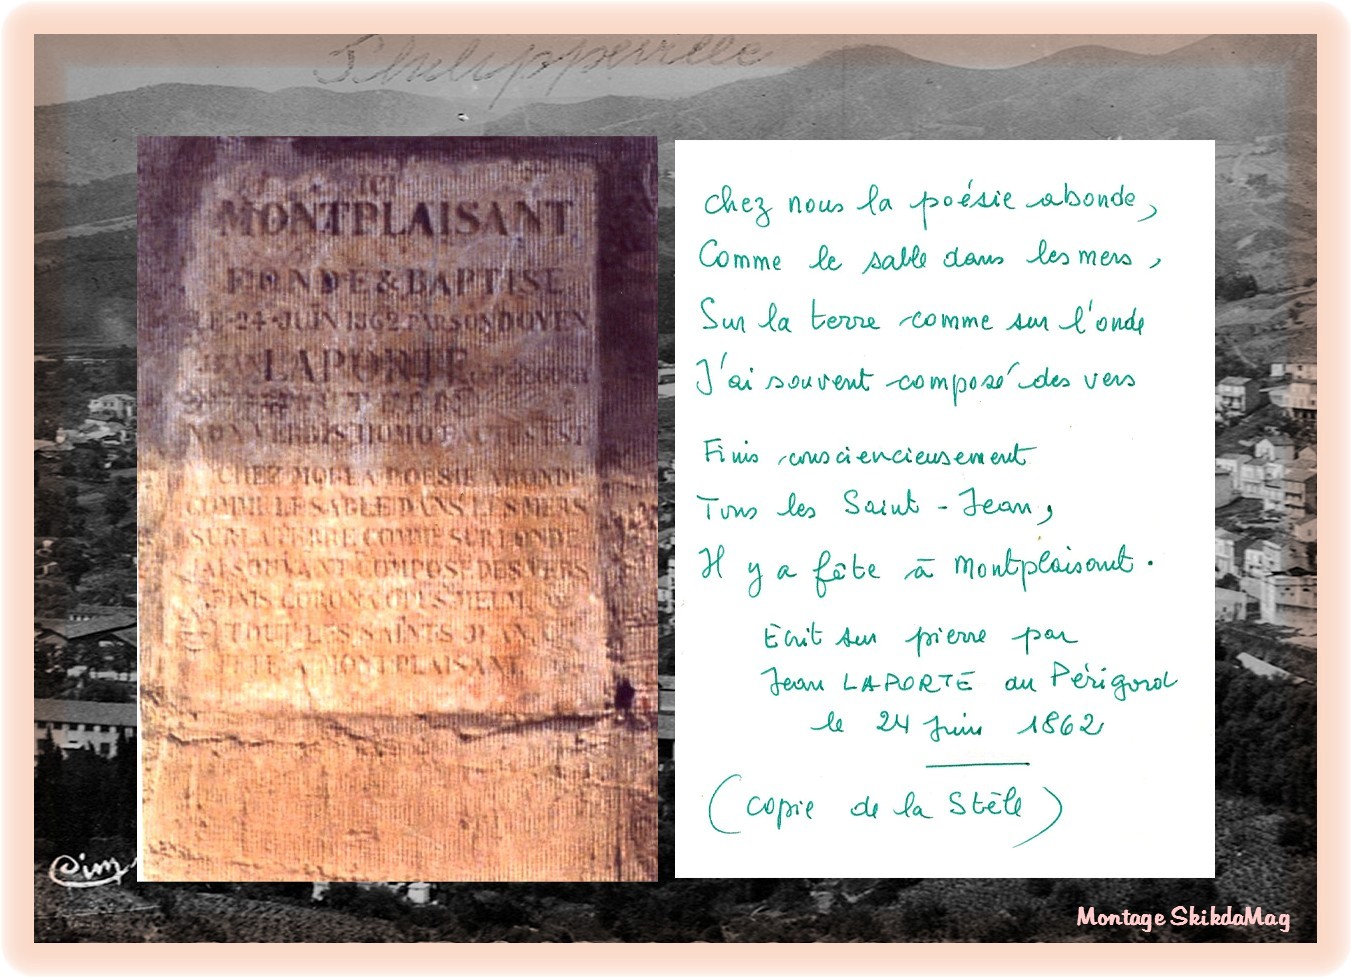 Philippeville
ICI
MONTPLAISANT
FONDE & BAPTISE
LE 24 JUIN 1862 PAR SON DOYEN
LAPORTE
NON VERBIS HOMO FACTUS EST
CHEZ MOI LA POESIE ABONDE
COMME LE SABLE DANS LES MERS
SUR LA TERRE COMME SUR L'ONDE
J'AI SOUVANT COMPOSE DES VERS
FINIS
TOUT LES SAINTS JEAN
FETE A MONTPLAISANT
Chez nous la poésie abonde,
Comme le sable dans les mers,
Sur la terre comme sur l'onde
J'ai souvent composé des vers
Finis consciencieusement
Tous les Saint-Jean,
Il y a fête à Montplaisant.
Ecrit sur pierre par
Jean LAPORTE du Périgord
le 24 Juin 1862
(Copie de la Stèle)
Cim
Montage SkikdaMag